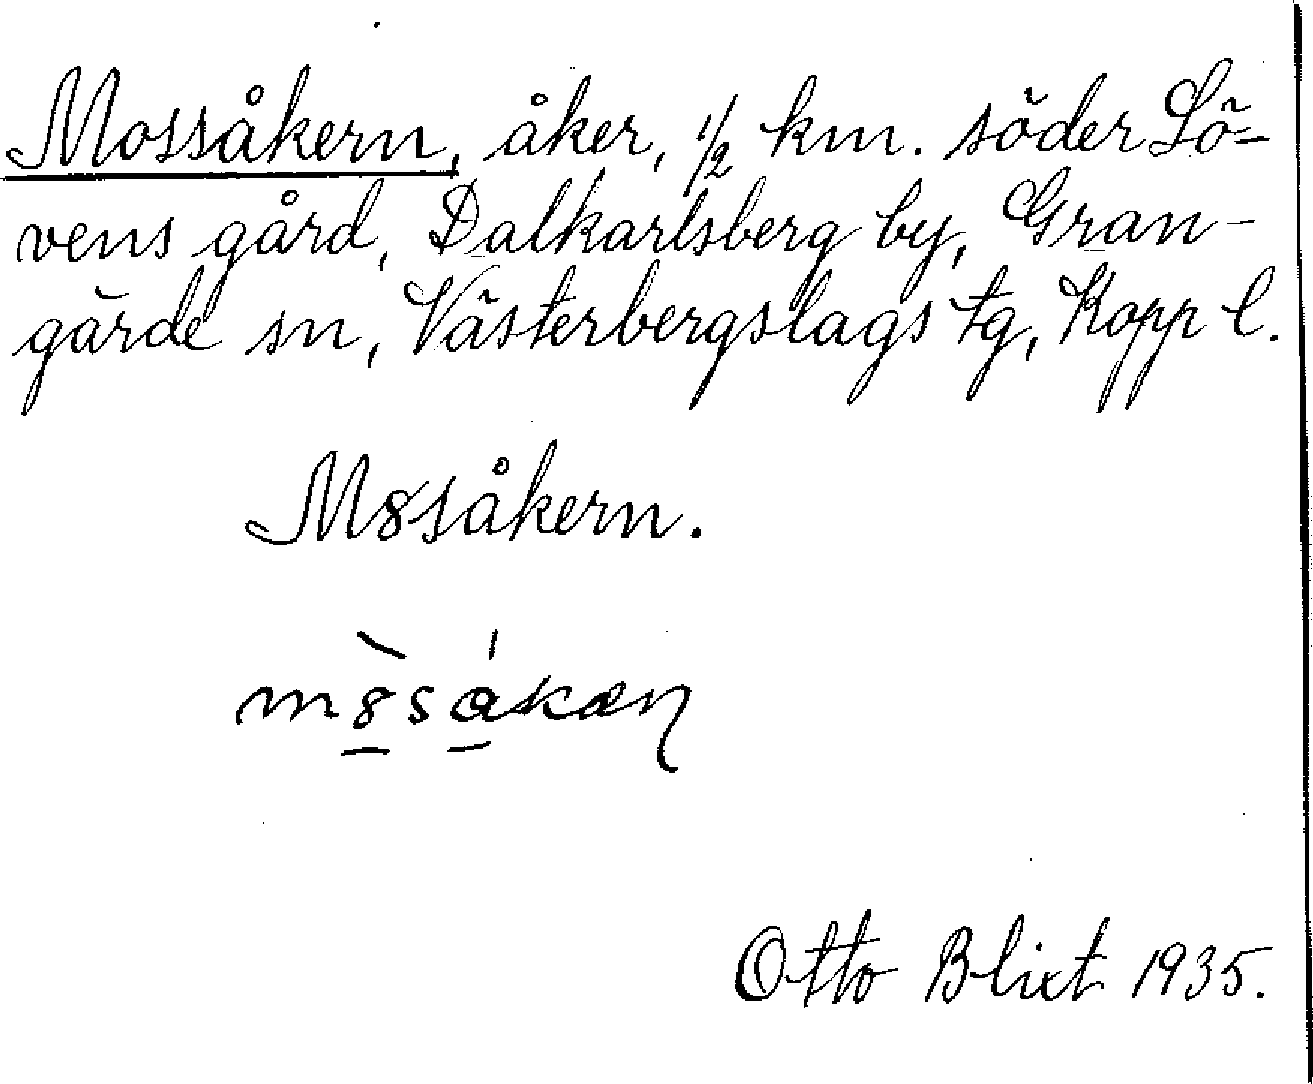 Mossåkern, åker, 1/2 km. söder Lö-
vens gård, Dalkarlsberg by, Gran-
gärde sn, Västerbergslags tg, Kopp l.
M8såkern.
m8̀såkæɳ
Otto Blixt 1935.